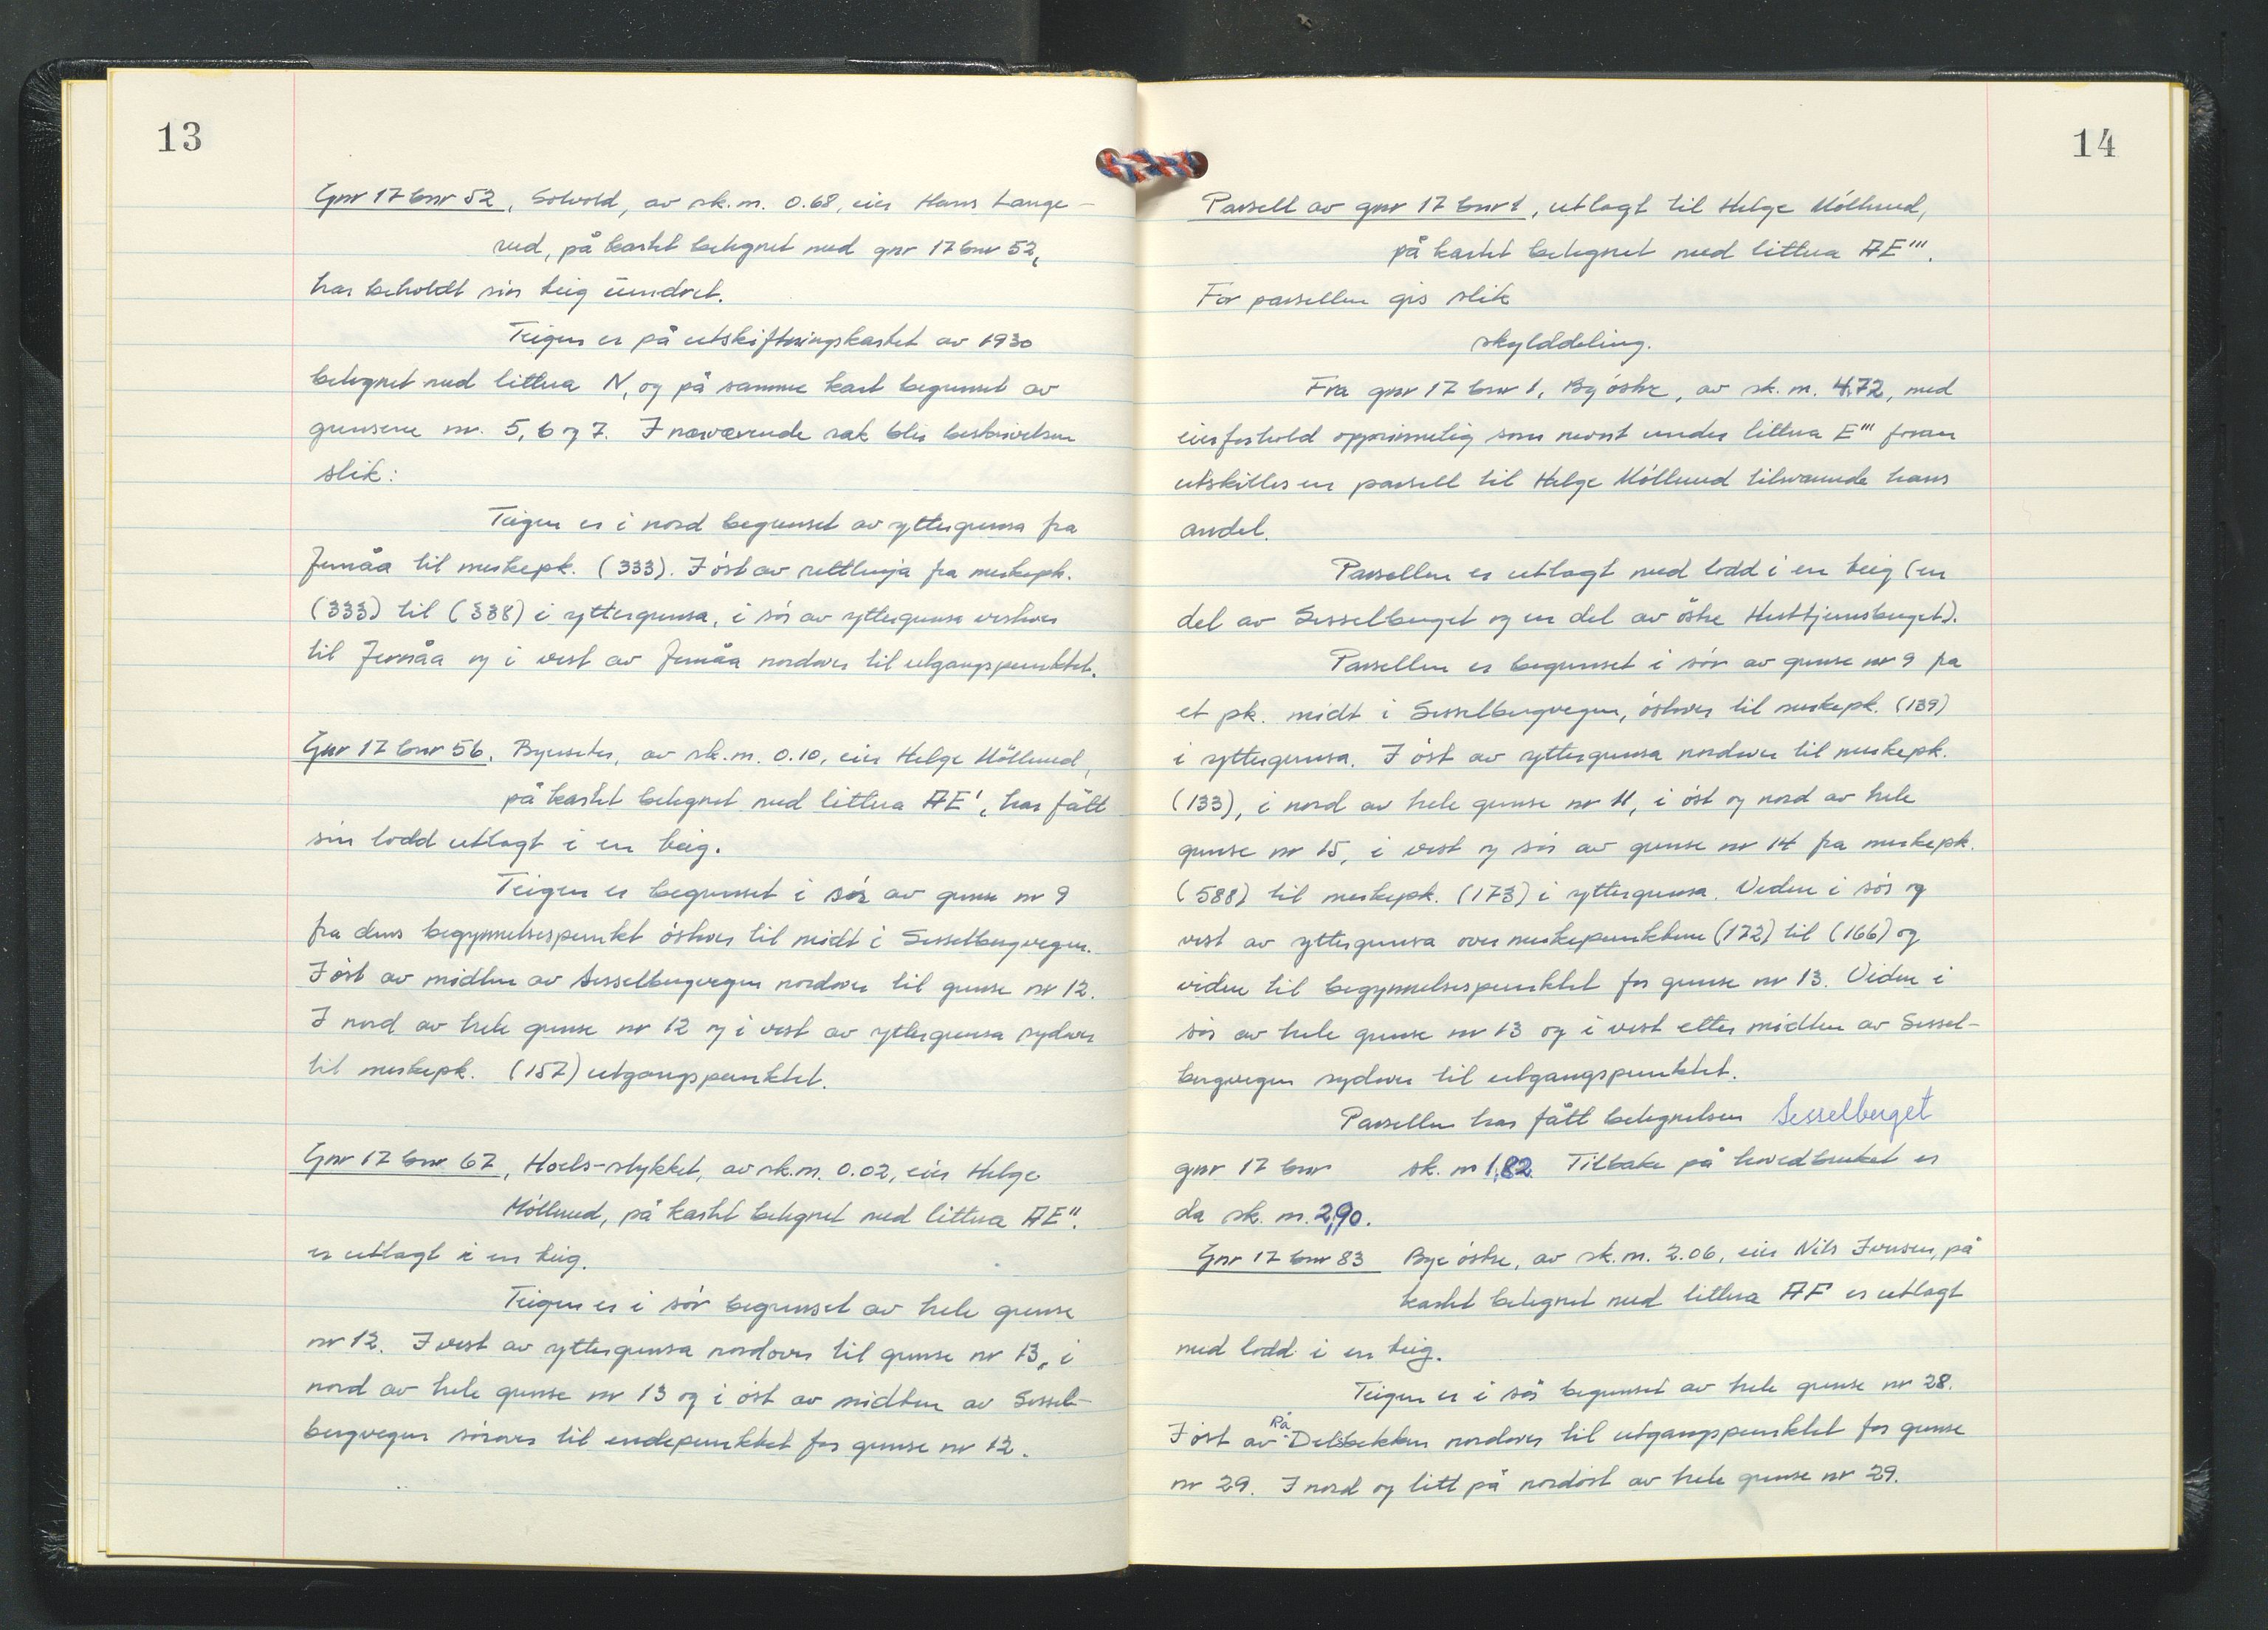 13
Gnr 17 bnr 52, Solvold, av sk.m. 0.68, eier Hans Lange-
rud, på kartet betegnet med gnr 17 bnr 52,
har beholdt sin teig uendret.
Teigen er på utskiftningskartet av 1930
betegnet med littra N, og på samme kart begrenset av
grensene nr. 5, 6 og 7. I nærværende sak blir beskrivelsen
slik:
Teigen er i nord begrenset av yttergrensa fra
Jernåa til merkepk. (333). I öst av rettlinja fra merkepk.
(333) til (338) i yttergrensa, i sör av yttergrensa vestover
til Jernåa og i vest av Jernåa nordover til utgangspunktet.
Gnr 17 bnr 56, Byeseter, av sk.m. 0.10, eier Helge Möllerud,
på kartet betegnet med littra AE', har fått
sin lodd utlagt i en teig.
Teigen er begrenset i sör av grense nr 9
fra dens begynnelsespunkt östover til midt i Sesselbergvegen.
I öst av midten av Sesselbergvegen nordover til grense nr 12.
I nord av hele grense nr 12 og i vest av yttergrensa sydover
til merkepk. (157) utgangspunktet.
Gnr 17 bnr 67, Hoels-stykket, av sk.m. 0.02, eier Helge
Möllerud, på kartet betegnet med littra AE''.
er utlagt i en teig.
Teigen er i sör begrenset av hele grense
nr 12. I vest av yttergrensa nordover til grense nr 13, i
nord av hele grense nr 13 og i öst av midten av Sessel-
bergvegen sörover til endepunktet for grense nr 12.
14
Parsell av gnr 17 bnr 1, utlagt til Helge Möllerud,
på kartet betegnet med littra AE'''.
For parsellen gis slik
skylddeling.
Fra gnr 17 bnr 1, By östre, av sk. m. 4,72, med
eierforhold opprinnelig som nevnt under littra E''' foran
utskilles en parsell til Helge Möllerud tilsvarende hans
andel.
Parsellen er utlagt med lodd i en teig (en
del av Sesselberget og en del av östre Huttjernsberget).
Parsellen er begrenset i sör av grense nr 9 fra
et pk. midt i Sesselbergvegen, östover til merkepk. (139)
i yttergrensa. I öst av yttergrensa nordover til merkepk.
(133), i nord av hele grense nr 11, i öst og nord av hele
grense nr 15, i vest og sör av grense nr 14 fra merkepk.
(588) til merkepk. (173) i yttergrensa. Videre i sör og
vest av yttergrensa over merkepunktene (172) til (166) og
videre til begynnelsespunktet for grense nr 13. Videre i
sör av hele grense nr 13 og i vest etter midten av Sessel-
bergvegen sydover til utgangspunktet.
Parsellen har fått betegnelsen Sesselberget
gnr 17 bnr sk. m 1,82. Tilbake på hovedbruket er
da sk. m. 2,90.
Gnr 17 bnr 83 Bye östre, av sk. m. 2.06, eier Nils Jensen, på
kartet betegnet med littra AF er utlagt
med lodd i en teig.
Teigen er i sör begrenset av hele grense nr 28.
Rå
I öst av Delsbekken nordover til utgangspunktet for grense
nr 29. I nord og litt på nordöst av hele grense nr 29.